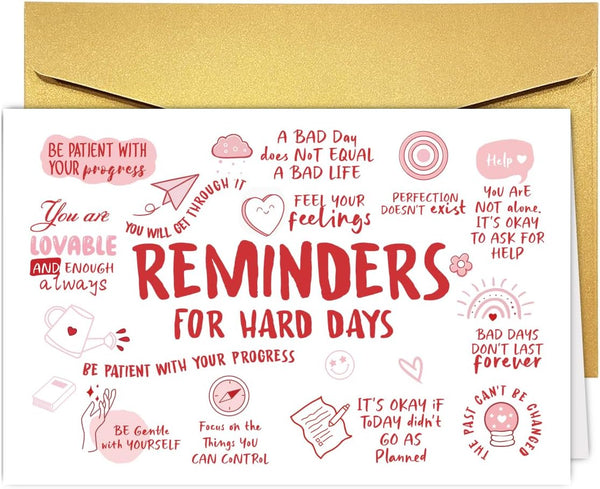 BE PATIENT WITH
YOUR progress
A BAD Day
does NOT EQUAL
A BAD LIFE
Help
YOU WILL GET THROUGH IT
FEEL YOUR
feelings
PERFECTION
DOESN'T exist
YOU ARE
NOT alone.
IT'S OKAY
TO ASK FOR
HELP
You are
LOVABLE
AND ENOUGH
always
REMINDERS
FOR HARD DAYS
BAD DAYS
DON'T LAST
forever
BE PATIENT WITH YOUR PROGRESS
BE Gentle
with YOURSELF
Focus on the
Things You
CAN CONTROL
IT'S OKAY iF
TODAY didn't
GO AS
Planned
THE PAST CAN'T BE CHANGED